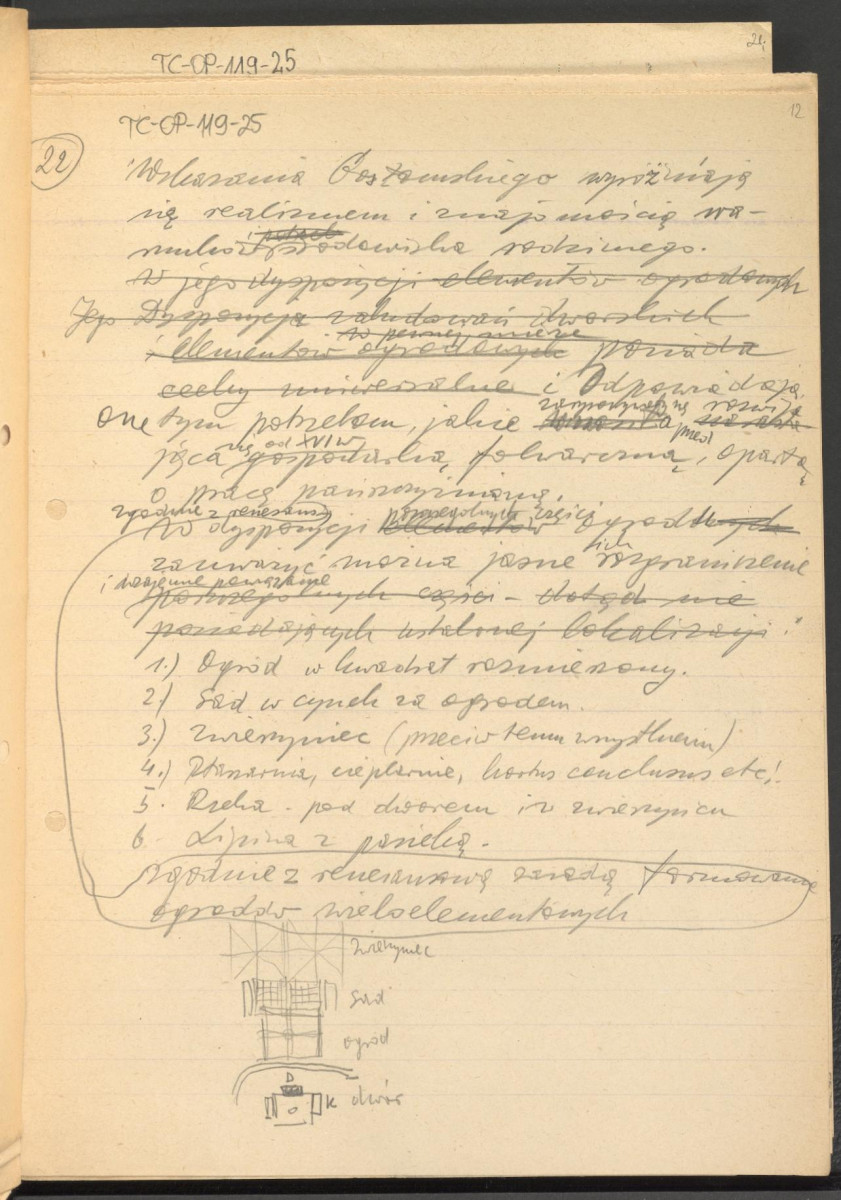 21.
TC-OP-119-25
12
TC-OP-119-25
22
Wskazania Gostomskiego wyróżniają
się realizmem i znajomością wa-
runków środowiska rodzimego.
W jego dyspozycji elementów ogrodowych
Jego Dyspozycja zabudowań dworskich
w pewnej mierze
i elementów ogrodowych posiada
cechy uniwersalne i Odpowiadają
one tym potrzebom, jakie
rozwija
jąca się od XVI w gospodarka, folwarczna, oparta
o pracę pańszczyźnianą.
zgodnie z renesans.
poszczególnych części
W dyspozycji elementów ogrodowych
zauważyć można jasne ich rozgraniczenie
i wzajemne powiązanie
poszczególnych części - dotąd nie
posiadających ustalonej lokalizacji.
1.) Ogród w kwadrat rozmierzony.
2.) Sad w cynek za ogrodem.
3.) Zwierzyniec (przeciw temu wszystkiemu)
4.) Ptaszarnia, cieplarnie, hortus conclusus etc.
5. Rzeka - pod dworem i w zwierzyńcu
6. Lipina z pasieką.
zgodnie z renesansową zasadą formowania
ogrodów wieloelementowych
Zwierzyniec
Sad
ogród
D
K dwór